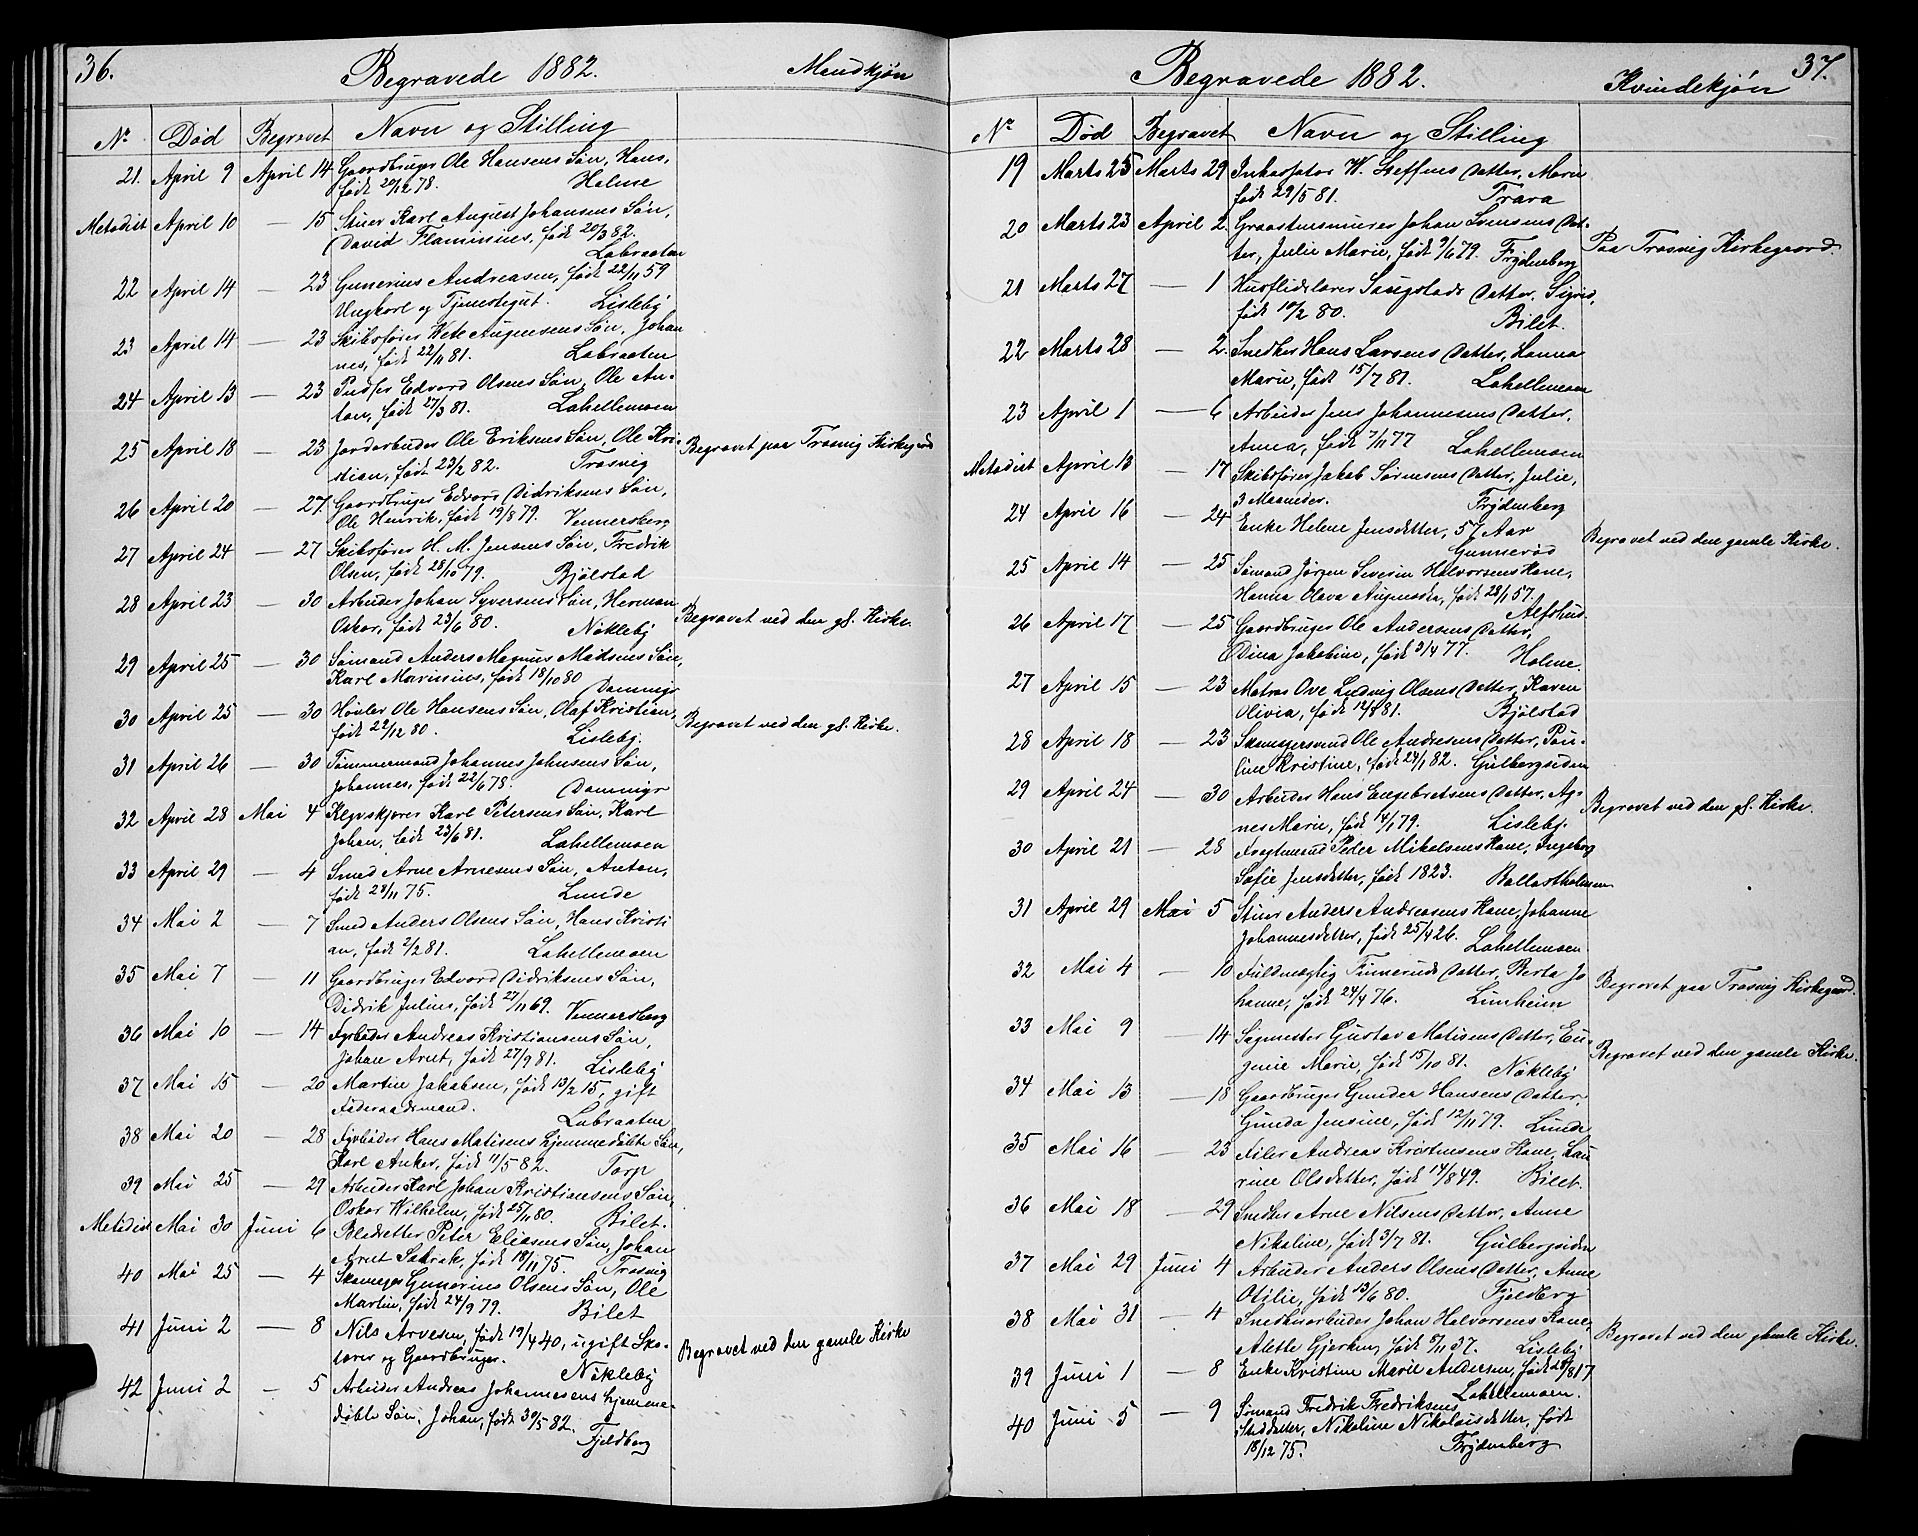 36.
Begravede 1882.
Mandkjøn
No Død Begravet Navn og Stilling
21. April 9 April 14 Gaardbruger Ole Hansens Søn, Hans,
født 20/12 78. Holme
Metodist April 10 — 15 Stuer Karl August Johansens Søn,
David Flaminius, født 20/3 82.
Labraaten
22 April 14 — 23 Gunerius Andreasen, født 22/11 59
Ungkarl og Tjenestegut. Lisleby
23 April 14 — 23 Skibsfører Wete Augensens Søn, Johan
nes, født 22/11 81. Labraaten
24 April 13 — 23 Pudser Edvard Olsens Søn, Ole An-
ton, født 27/3 81. Lahellemoen
25 April 18 — 23 Jordarbeider Ole Eriksens Søn, Ole Kri-
stian, født 23/2 82. Trosvig
Begravet paa Trosvig Kirkegaard
26 April 20 — 27 Gaardbruger Edvard Didriksens Søn,
Ole Henrik, født 19/8 79. Vennersberg
27 April 24 — 27 Skibsfører H. M. Jensens Søn, Fredrik
Olsen, født 28/10 79. Bjølstad
28 April 23 — 30 Arbeider Johan Syversens Søn, Herman
Oskar, født 23/6 80. Nøkleby
Begravet ved den gl. Kirke.
29 April 25 — 30 Sømand Anders Magnus Madsens Søn,
Karl Marinius, født 18/10 80
Dammyr
30 April 25 — 30 Høvler Ole Hansens Søn, Olaf Kristian,
født 22/12 80. Lisleby.
Begravet ved den gl. Kirke.
31 April 26 — 30 Tømmermand Johannes Johnsens Søn,
Johannes, født 22/6 78. Dammyr
32 April 28 Mai 4 Revskjører Karl Petersens Søn, Karl
Johan, født 23/6 81. Lahellemoen
33 April 29 — 4 Smed Arne Arnesens Søn, Anton,
født 23/11 75. Lunde
34 Mai 2 — 7 Smed Anders Olsens Søn, Hans Kristi
an, født 2/2 81. Lahellemoen
35 Mai 7 — 11 Gaardbruger Edvard Didriksens Søn,
Didrik Julius, født 27/11 69. Vennersberg
36 Mai 10 — 14 Fyrbøder Andreas Kristiansens Søn,
Johan Arnt, født 27/9 81. Lisleby
37 Mai 15 — 20 Martin Jakobsen, født 13/2 15, gift
Føderaadsmand. Labraaten
38 Mai 20 — 28 Fyrbøder Hans Matisens hjemmedøbte Søn,
Karl Anker, født 11/5 82. Torp
39 Mai 25 — 29 Arbeider Karl Johan Kristiansens Søn,
Oskar Wilhelm, født 25/11 80. Bilet.
Metodist Mai 30 Juni 6 Bladsetter Peter Eliasens Søn, Johan
Arnt Sakrak, født 18/11 75. Trosvig
40 Mai 25 — 4 Skomager Gunerius Olsens Søn, Ole
Martin, født 24/9 79. Bilet
41 Juni 2 — 8 Nils Arvesen, født 19/4 40, ugift Sko-
lærer og Gaardbruger. Nøkleby
Begravet ved den gamle Kirke
42 Juni 2 — 5 Arbeider Andreas Johannesens hjemme-
døbte Søn, Johan, født 30/5 82.
Fjeldberg
37.
Begravede 1882.
Kvindekjøn
No Død Begravet Navn og Stilling
19 Marts 25 Marts 29 Inkassator W. Steffens Datter, Marie
født 29/5 81. Trara
20 Marts 23 April 2 Graastensmurer Johan Svensens Dat-
ter, Julie Marie, født 9/6 79. Frydenberg
Paa Trosvig Kirkegaard.
21 Marts 27 — 1 Husflidslærer Saugstads Datter, Sigrid,
født 10/2 80. Bilet.
22 Marts 28 — 2. Snedker Hans Larsens Datter, Hanna
Marie, født 15/7 81. Lahellemoen
23 April 1 — 6 Arbeider Jens Johannesens Datter,
Anna, født 7/11 77 Lahellemoen
Metodist April 13 — 17 Skibsfører Jakob Sørensens Datter, Julie,
3 Maaneder. Frydenberg
24 April 16 — 24 Enke Helene Jensdatter, 57 Aar
Gunnerød
Begravet ved den gamle Kirke.
25 April 14 — 25 Sømand Jørgen Severin Halvorsens Kone,
Hanna Olava Augensdtr, født 28/1 57.
Alfshus.
26 April 17 — 25 Gaardbruger Ole Andersens Datter,
Dina Jakobine, født 3/4 77. Holme.
27 April 15 — 23 Matros Ove Ludvig Olsens Datter, Karen
Olivia, født 12/8 81. Bjølstad
28 April 18 — 23 Skomagersvend Ole Andresens Datter, Pau-
line Kristine, født 24/1 82. Gulbergsiden
29 April 24 — 30 Arbeider Hans Engebretsens Datter, Ag-
nes Marie, født 14/1 79. Lisleby.
Begravet ved den gl. Kirke.
30 April 21 — 28 Fragtmand Peder Mikelsens Kone, Ingeborg
Sofie Jensdatter, født 1823. Ballastholmen
31 April 29 Mai 5 Stuer Anders Andreasens Kone, Johanne
Johannesdatter, født 25/4 26. Lahellemoen
32 Mai 4 — 10 Fuldmægtig Finneruds Datter, Berta Jo
hanne, født 24/4 76. Limheim
Begravet paa Trosvig Kirkegaard.
33 Mai 9 — 14 Sagmester Gustav Matisens Datter, Eu-
genie Marie, født 15/10 81. Nøkleby
Begravet ved den gamle Kirke.
34 Mai 13 — 18 Gaardbruger Gunder Hansens Datter,
Gunda Jensine, født 12/11 79. Lunde
35 Mai 16 — 23 Filer Andreas Kristensens Kone, Lau
rine Olsdatter, født 14/8 49. Bilet.
36 Mai 18 — 29 Snedker Arne Nilsens Datter, Anne
Nikoline, født 3/7 81. Gulbergsiden
37 Mai 29 Juni 4 Arbeider Anders Olsens Datter, Anne
Otilie, født 13/6 80. Fjeldberg
38 Mai 31 — 4 Snedkerarbeider Johan Halvorsens Kone,
Alette Gjerken, født 5/11 37. Lisleby
Begravet ved den gamle Kirke.
39 Juni 1 — 8 Enke Kristine Marie Andersen, født 28/8 17
Lahellemoen.
40 Juni 5 — 9 Sømand Fredrik Fredriksens
Steddatter, Nikoline Nikolaisdatter, født
18/12 75. Frydenberg